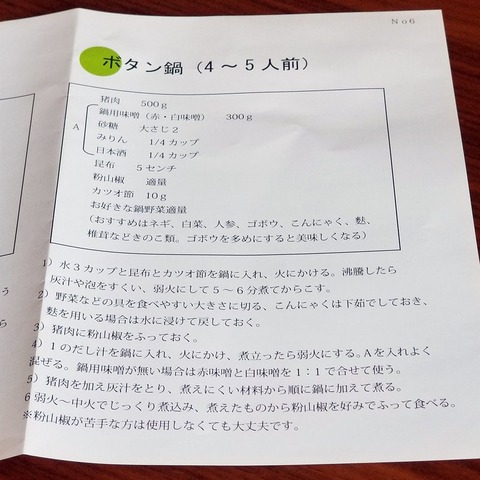 No6
ボタン鍋（4～5人前）
猪肉 500g
鍋用味噌（赤・白味噌） 300g
砂糖 大さじ2
A
みりん 1/4カップ
日本酒 1/4カップ
昆布 5センチ
粉山椒 適量
カツオ節 10g
お好きな鍋野菜適量
（おすすめはネギ、白菜、人参、ゴボウ、こんにゃく、麩、
椎茸などきのこ類。ゴボウを多めにすると美味しくなる）
1）水3カップと昆布とカツオ節を鍋に入れ、火にかける。沸騰したら
灰汁や泡をすくい、弱火にして5～6分煮てからこす。
2）野菜などの具を食べやすい大きさに切る、こんにゃくは下茹でしておき、
麩を用いる場合は水に浸けて戻しておく。
3）猪肉に粉山椒をふっておく。
4）1のだし汁を鍋に入れ、火にかけ、煮立ったら弱火にする。Aを入れよく
混ぜる。鍋用味噌が無い場合は赤味噌と白味噌を1：1で合せて使う。
5）猪肉を加え灰汁をとり、煮えにくい材料から順に鍋に加えて煮る。
6弱火～中火でじっくり煮込み、煮えたものから粉山椒を好みでふって食べる。
※粉山椒が苦手な方は使用しなくても大丈夫です。